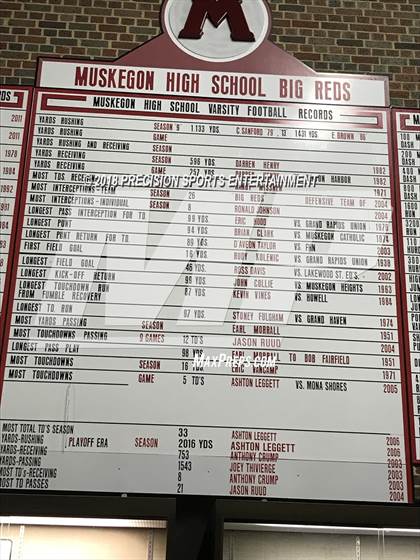 M
MUSKEGON HIGH SCHOOL BIG REDS
MUSKEGON HIGH SCHOOL VARSITY FOOTBALL RECORDS
YARDS RUSHING SEASON 9 1,133 YDS. C SANFORD 79 , 13 1,431 YDS E BROWN 86
YARDS RUSHING GAME
YARDS RUSHING AND RECEIVING SEASON
YARDS RECEIVING SEASON 596 YDS DARREN HENRY 1982
YARDS RECEIVING GAME 257 YDS HARBOR 1982
MOST TDS. RECEIVING
©2018 PRECISION SPORTS ENTERTAINMENT
MOST INTERCEPTIONS-TEAM 26 BIG REDS DEFENSIVE TEAM OF 2004
MOST INTERCEPTIONS-INDIVIDUAL SEASON 8 RONALD JOHNSON 2004
LONGEST PASS INTERCEPTION FOR TD 99 YDS ERIC HOOD VS GRAND RAPIDS UNION 1979
LONGEST PUNT 94 YDS BRIAN CLARK VS MUSKEGON CATHOLIC 1974
LONGEST PUNT RETURN FOR TD 89 YDS D'AVEON TAYLOR VS FHN 2003
FIRST FIELD GOAL 16 YDS ROY KOLENIC VS GRAND RAPIDS UNION 1938
LONGEST FIELD GOAL 46 YDS RUSS DAVIS VS LAKEWOOD ST. ED'S 2002
LONGEST KICK-OFF RETURN 99 YDS JOHN COLLIE VS MUSKEGON HEIGHTS 1963
LONGEST TOUCHDOWN RUN FROM FUMBLE RECOVERY 87 YDS KEVIN VINES VS HOWELL 1984
LONGEST TD RUN 97 YDS STONEY FULGHAM VS GRAND HAVEN 1974
MOST YARDS PASSING SEASON EARL MORRALL 1951
MOST TOUCHDOWNS PASSING 9 GAMES 12 TD'S JASON RUUD
LONGEST PASS PLAY 98 TO BOB FAIRFIELD 1951
MOST TOUCHDOWNS SEASON 16 VANCAMP 1971
MOST TOUCHDOWNS GAME 5 TD'S ASHTON LEGGETT VS MONA SHORES 2005
MaxPreps.com
MOST TOTAL TD'S SEASON 33 ASHTON LEGGETT 2006
YARDS-RUSHING PLAYOFF ERA SEASON 2016 YDS ASHTON LEGGETT 2006
YARDS-RECEIVING 753 ANTHONY CRUMP 2003
YARDS-PASSING 1543 JOEY THIVIERGE 2003
MOST TD's-RECEIVING 8 ANTHONY CRUMP 2003
MOST TD PASSES 21 JASON RUUD 2004